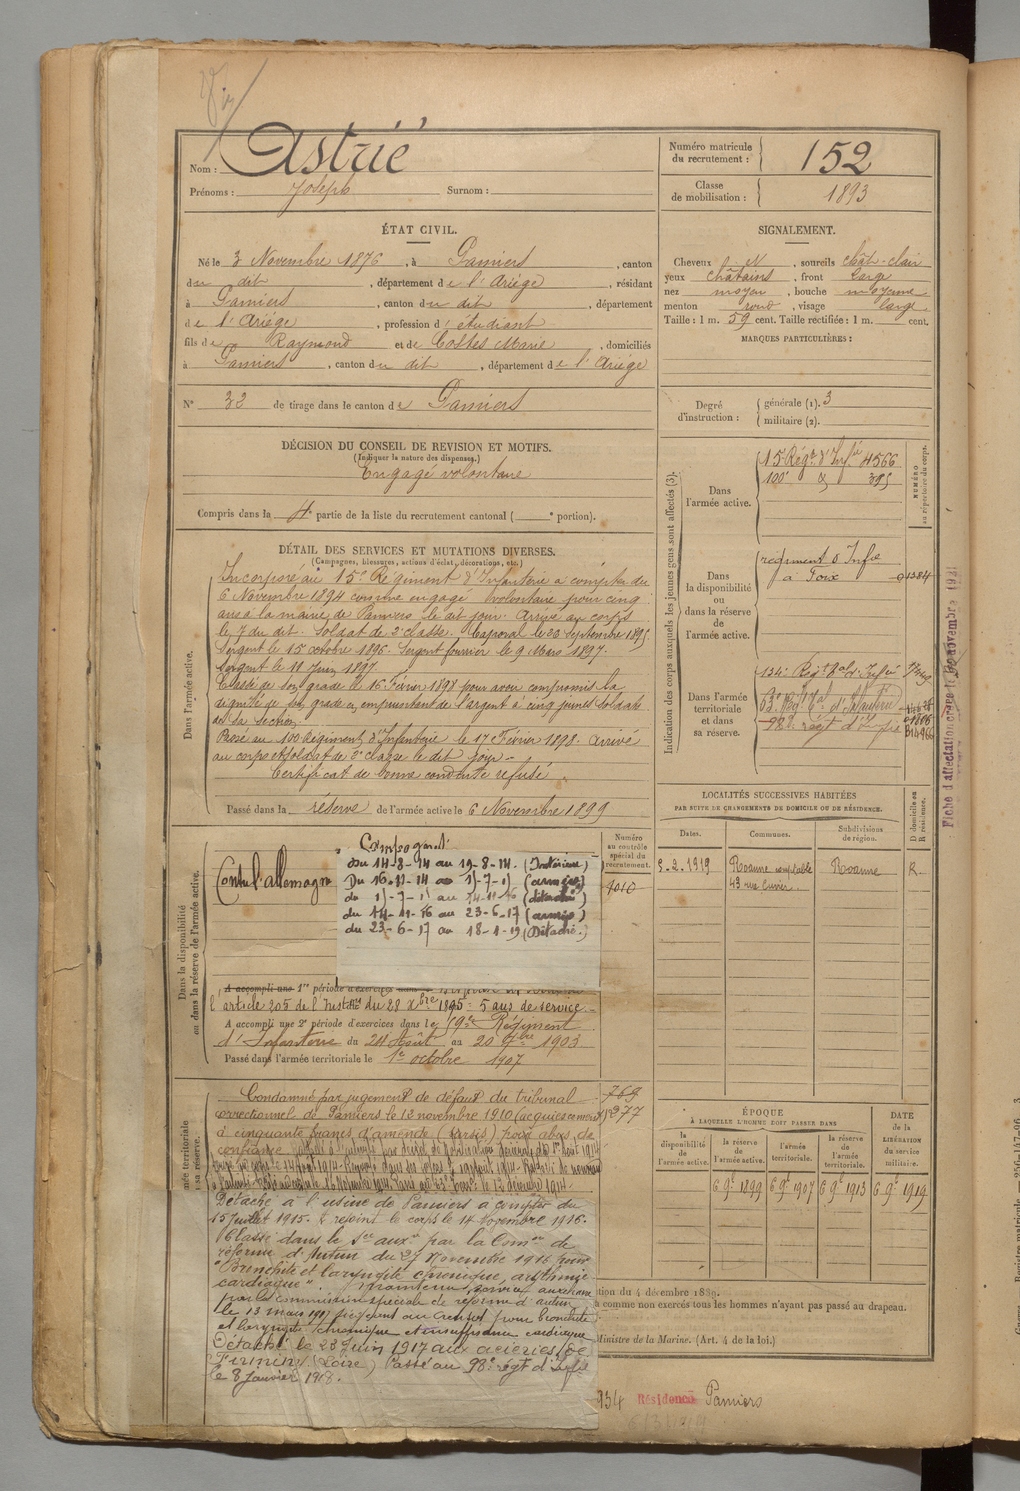 Nom : Astrié
Prénoms : Joseph Surnom :
Numéro matricule du recrutement : 152
Classe de mobilisation : 1893
ÉTAT CIVIL.
Né le 3 Novembre 1876, à Pamiers, canton
du dit, département de l'Ariège, résidant
à Pamiers, canton du dit, département
de l'Ariège, profession d'étudiant
fils de Raymond et de Costes Marie, domiciliés
à Pamiers, canton du dit, département de l'Ariège
N° 32 de tirage dans le canton de Pamiers
SIGNALEMENT.
Cheveux N, sourcils chât-clair
yeux châtains, front large
nez moyen, bouche moyenne
menton rond, visage large
Taille : 1 m. 59 cent. Taille rectifiée : 1 m. cent.
MARQUES PARTICULIÈRES :
Degré d'instruction : générale (1). 3
militaire (2).
DÉCISION DU CONSEIL DE REVISION ET MOTIFS.
(Indiquer la nature des dispenses.)
Engagé volontaire
Compris dans la 4e partie de la liste du recrutement cantonal ( e portion).
DÉTAIL DES SERVICES ET MUTATIONS DIVERSES.
(Campagnes, blessures, actions d'éclat, décorations, etc.)
Dans l'armée active.
Incorporé au 15e Régiment d'Infanterie à compter du
6 Novembre 1894 comme engagé volontaire pour cinq
ans à la mairie de Pamiers le dit jour. Arrivé au corps
le 7 du dit. Soldat de 2e classe. Caporal le 23 Septembre 1895.
Sergent le 15 octobre 1896. Sergent fourrier le 9 Mars 1897.
Sergent le 11 Juin 1897.
Cassé de son grade le 16 Février 1898 pour avoir compromis la
dignité de son grade en empruntant de l'argent à cinq jeunes soldats
de sa section.
Passé au 100 Régiment d'Infanterie le 17 Février 1898. Arrivé
au corps et soldat de 2e classe le dit jour.
Certificat de bonne conduite refusé
Passé dans la réserve de l'armée active le 6 Novembre 1899
Indication des corps auxquels les jeunes gens sont affectés (3).
NUMÉRO au répertoire du corps.
Dans l'armée active.
15 Régt d'Infie 4566
100 d° 395
Dans la disponibilité ou dans la réserve de l'armée active.
régiment d'Infie
à Foix 01384
Dans l'armée territoriale et dans sa réserve.
134e Régt d'Infie
98e régt d'Infie
Dans la disponibilité ou dans la réserve de l'armée active.
Contre l'allemagne
Campagne
du 14-8-14 au 19-8-14. (Intérieur)
(armée)
(détaché)
du 14-11-16 au 23-6-17 (armée)
du 23-6-17 au 18-1-19 (Détaché.)
Numéro au contrôle spécial du recrutement.
1010
A accompli une 1re période d'exercices dans
l'article 205 de l'Instron du 28 Xbre 1895: 5 ans de service
A accompli une 2e période d'exercices dans le 59e Régiment
d'Infanterie du 24 Août au 20 7bre 1903
Passé dans l'armée territoriale le 1er octobre 1907
LOCALITÉS SUCCESSIVES HABITÉES
PAR SUITE DE CHANGEMENTS DE DOMICILE OU DE RÉSIDENCE.
D domicile ou R résidence.
Dates. Communes. Subdivisions de région.
2.2.1919 Roanne comptable Roanne R.
43 rue Cuvier.
Fiche d'affectation
Condamné par jugement de défaut du tribunal 769
correctionnel de Pamiers le 12 novembre 1910 (acquiescement)
à cinquante francs d'amende (sursis) pour abus de
confiance.
Détaché à l'usine de Pamiers à compter du
15 Juillet 1915. A rejoint le corps le 14 Novembre 1916.
Classé dans le Sce auxre par la Comon de
réforme d'Autun du 27 Novembre 1916 pour
"Bronchite et laryngite chronique, arythmie
cardiaque". Maintenu service auxiliaire
par la commission spéciale de réforme d'Autun
le 13 mars 1917 siégeant au Creusot pour bronchite
et laryngite chronique et insuffisance cardiaque
Détaché le 23 Juin 1917 aux aciéries de
Firminy (Loire) Passé au 98e régt d'Infie
le 8 Janvier 1918.
ÉPOQUE
À LAQUELLE L'HOMME DOIT PASSER DANS
la disponibilité de l'armée active. la réserve de l'armée active. l'armée territoriale. la réserve de l'armée territoriale. DATE de la LIBÉRATION du service militaire.
6 9e 1899 6 9e 1907 6 9e 1913 6 9e 1919
tion du 4 décembre 1889.
comme non exercés tous les hommes n'ayant pas passé au drapeau.
Ministre de la Marine. (Art. 4 de la loi.)
934 Résidence Pamiers